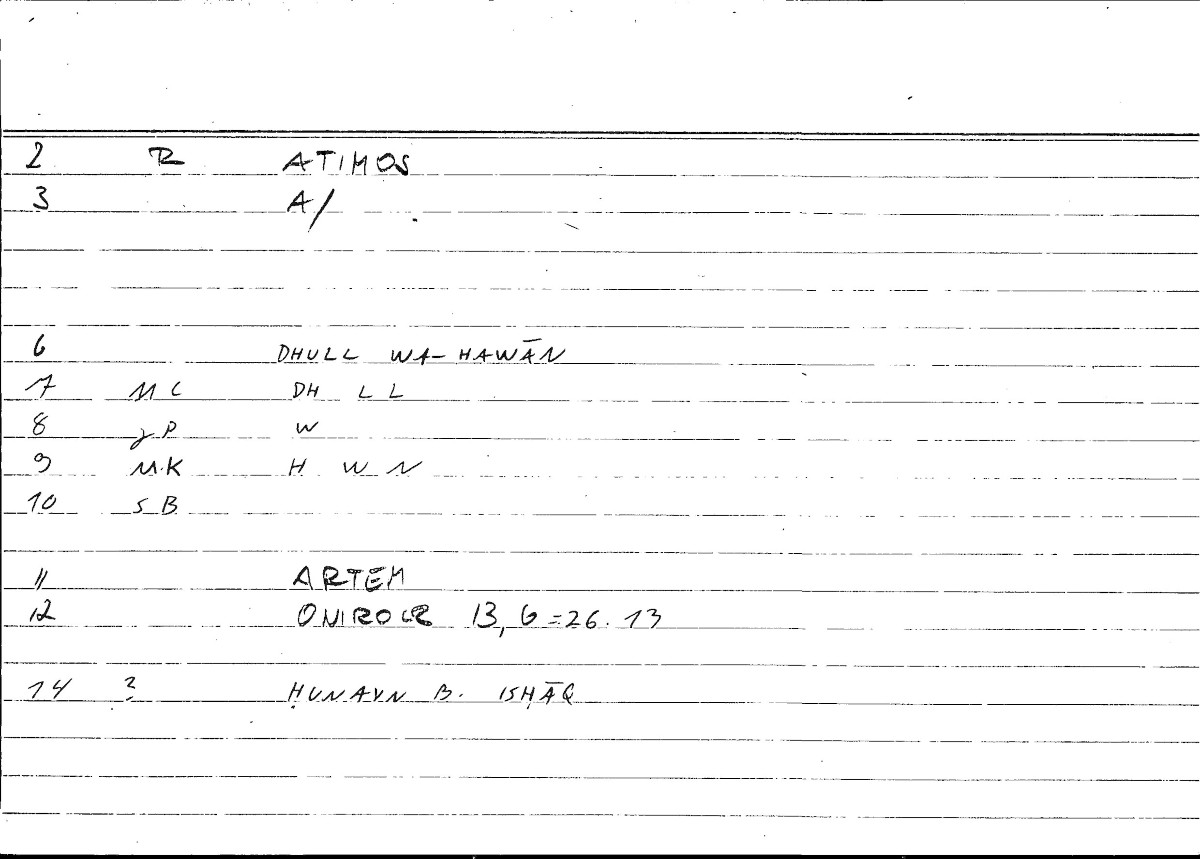 2 R ATIMOS
3 A/
6 DHULL WA-HAWĀN
7 MC DH L L
8 gP W
9 M.K H W N
10 SB
11 ARTEM
12 ONIROCR 13, 6 = 26.13
14 ? ḤUNAYN B. ISḤĀQ